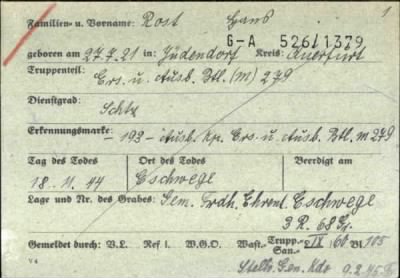 1
Familien- u. Vorname: Rost Hans
G-A 526/1379
geboren am 27.7.21 in: Jüdendorf Kreis: Querfurt
Truppenteil: Ers. u. Ausb. Btl. (m) 279
Dienstgrad: Schtz
Erkennungsmarke: -193- Ausb. Kp. Ers. u. Ausb. Btl. m 279
Tag des Todes Ort des Todes Beerdigt am
18.11.44 Eschwege
Lage und Nr. des Grabes: Gem. Frdh. Ehrent. Eschwege
3 R. 68 Gr.
Gemeldet durch: V.L. Ref I. W.G.O. Wast.- Trupp.- San.- IX 60 Bl. 105
V 4 Stellv. Gen. Kdo 9.2.45